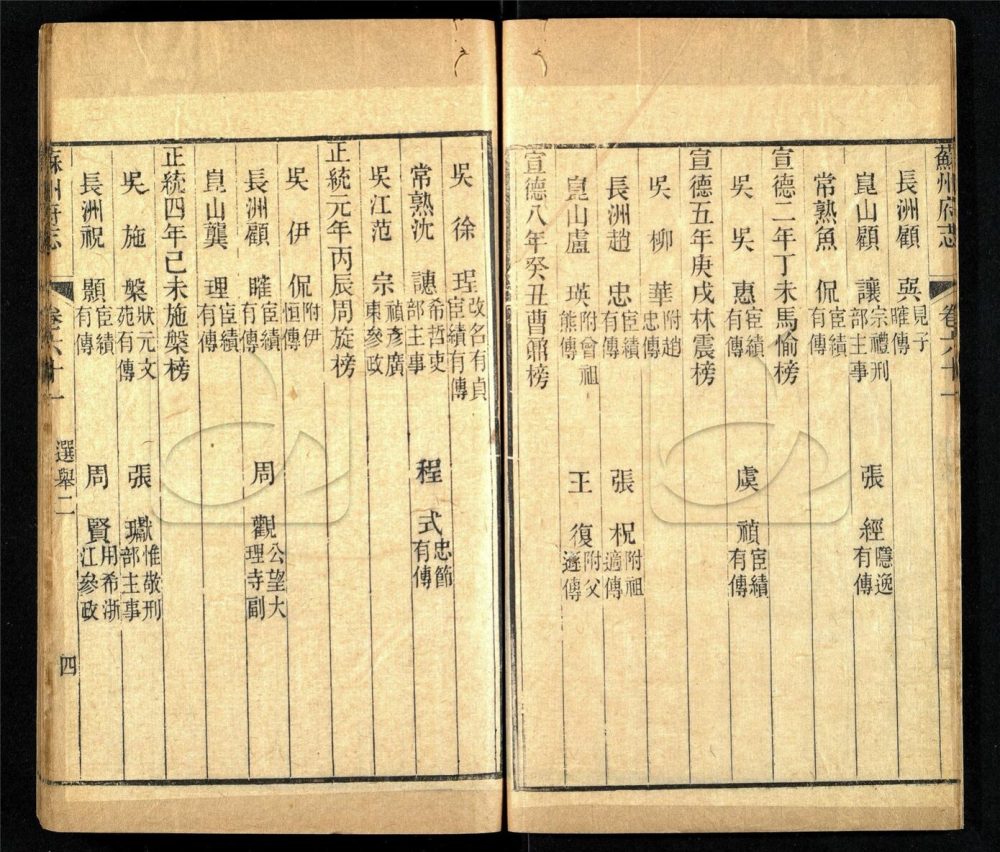 蘇州府志 卷六十一
長洲顧 巽 見子睢傳
崑山顧 讓 宗禮刑部主事 張 經 隱逸有傳
常熟魚 侃 宦績有傳
宣德二年丁未馬愉榜
吳 吳 惠 宦績有傳 虞 禎 宦績有傳
宣德五年庚戌林震榜
吳 柳 華 附趙忠傳
長洲趙 忠 宦績有傳 張 柷 附祖適傳
崑山盧 瑛 附曾祖熊傳 王 復 附父遜傳
宣德八年癸丑曹鼐榜
吳 徐 珵 改名有貞宦績有傳
常熟沈 譓 希哲吏部主事 程 式 忠節有傳
吳江范 宗 禎彥廣東參政
正統元年丙辰周旋榜
吳 伊 侃 附伊恒傳
長洲顧 睢 宦績有傳 周 觀 公望大理寺副
崑山龔 理 宦績有傳
正統四年己未施槃榜
吳 施 槃 狀元文苑有傳 張 瓛 惟敬刑部主事
長洲祝 顥 宦績有傳 周 賢 用希浙江參政
蘇州府志 卷六十一 選舉二 四